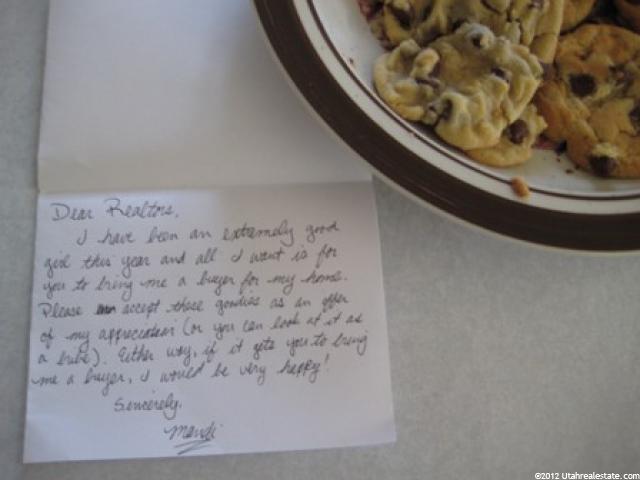 Dear Realtors,
I have been an extremely good
girl this year and all I want is for
you to bring me a buyer for my home.
Please accept these goodies as an offer
of my appreciation (or you can look at it as
a bribe). Either way, if it gets you to bring
me a buyer, I would be very happy!
Sincerely,
Mandi
©2012 Utahrealestate.com